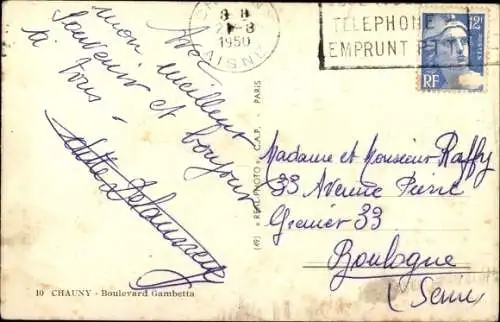 CHAUNY
8 8
2 -8
1950
AISNE
TELEPHONE
EMPRUNT P.T.T.
12F
RF
Avec
mon meilleur
souvenir et bonjour
à tous -
Madame et Monsieur Raffy
33 Avenue Pierre
Grenier 33
Boulogne
(Seine)
(49) « REAL-PHOTO » C.A.P. - PARIS
10 CHAUNY - Boulevard Gambetta